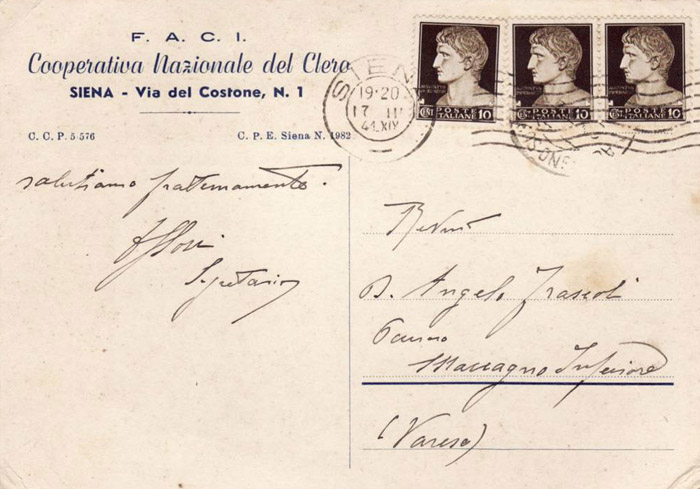 F. A. C. I.
Cooperativa Nazionale del Clero
SIENA - Via del Costone, N. 1
C. C. P. 5-576
C. P. E. Siena N. 1982
SIENA
19·20
17 III
41 XIX
POSTE ITALIANE 10
POSTE ITALIANE 10
POSTE ITALIANE 10
salutiamo fraternamente.
Segretario
D. Angelo Frascoli
Maccagno Inferiore
(Varese)